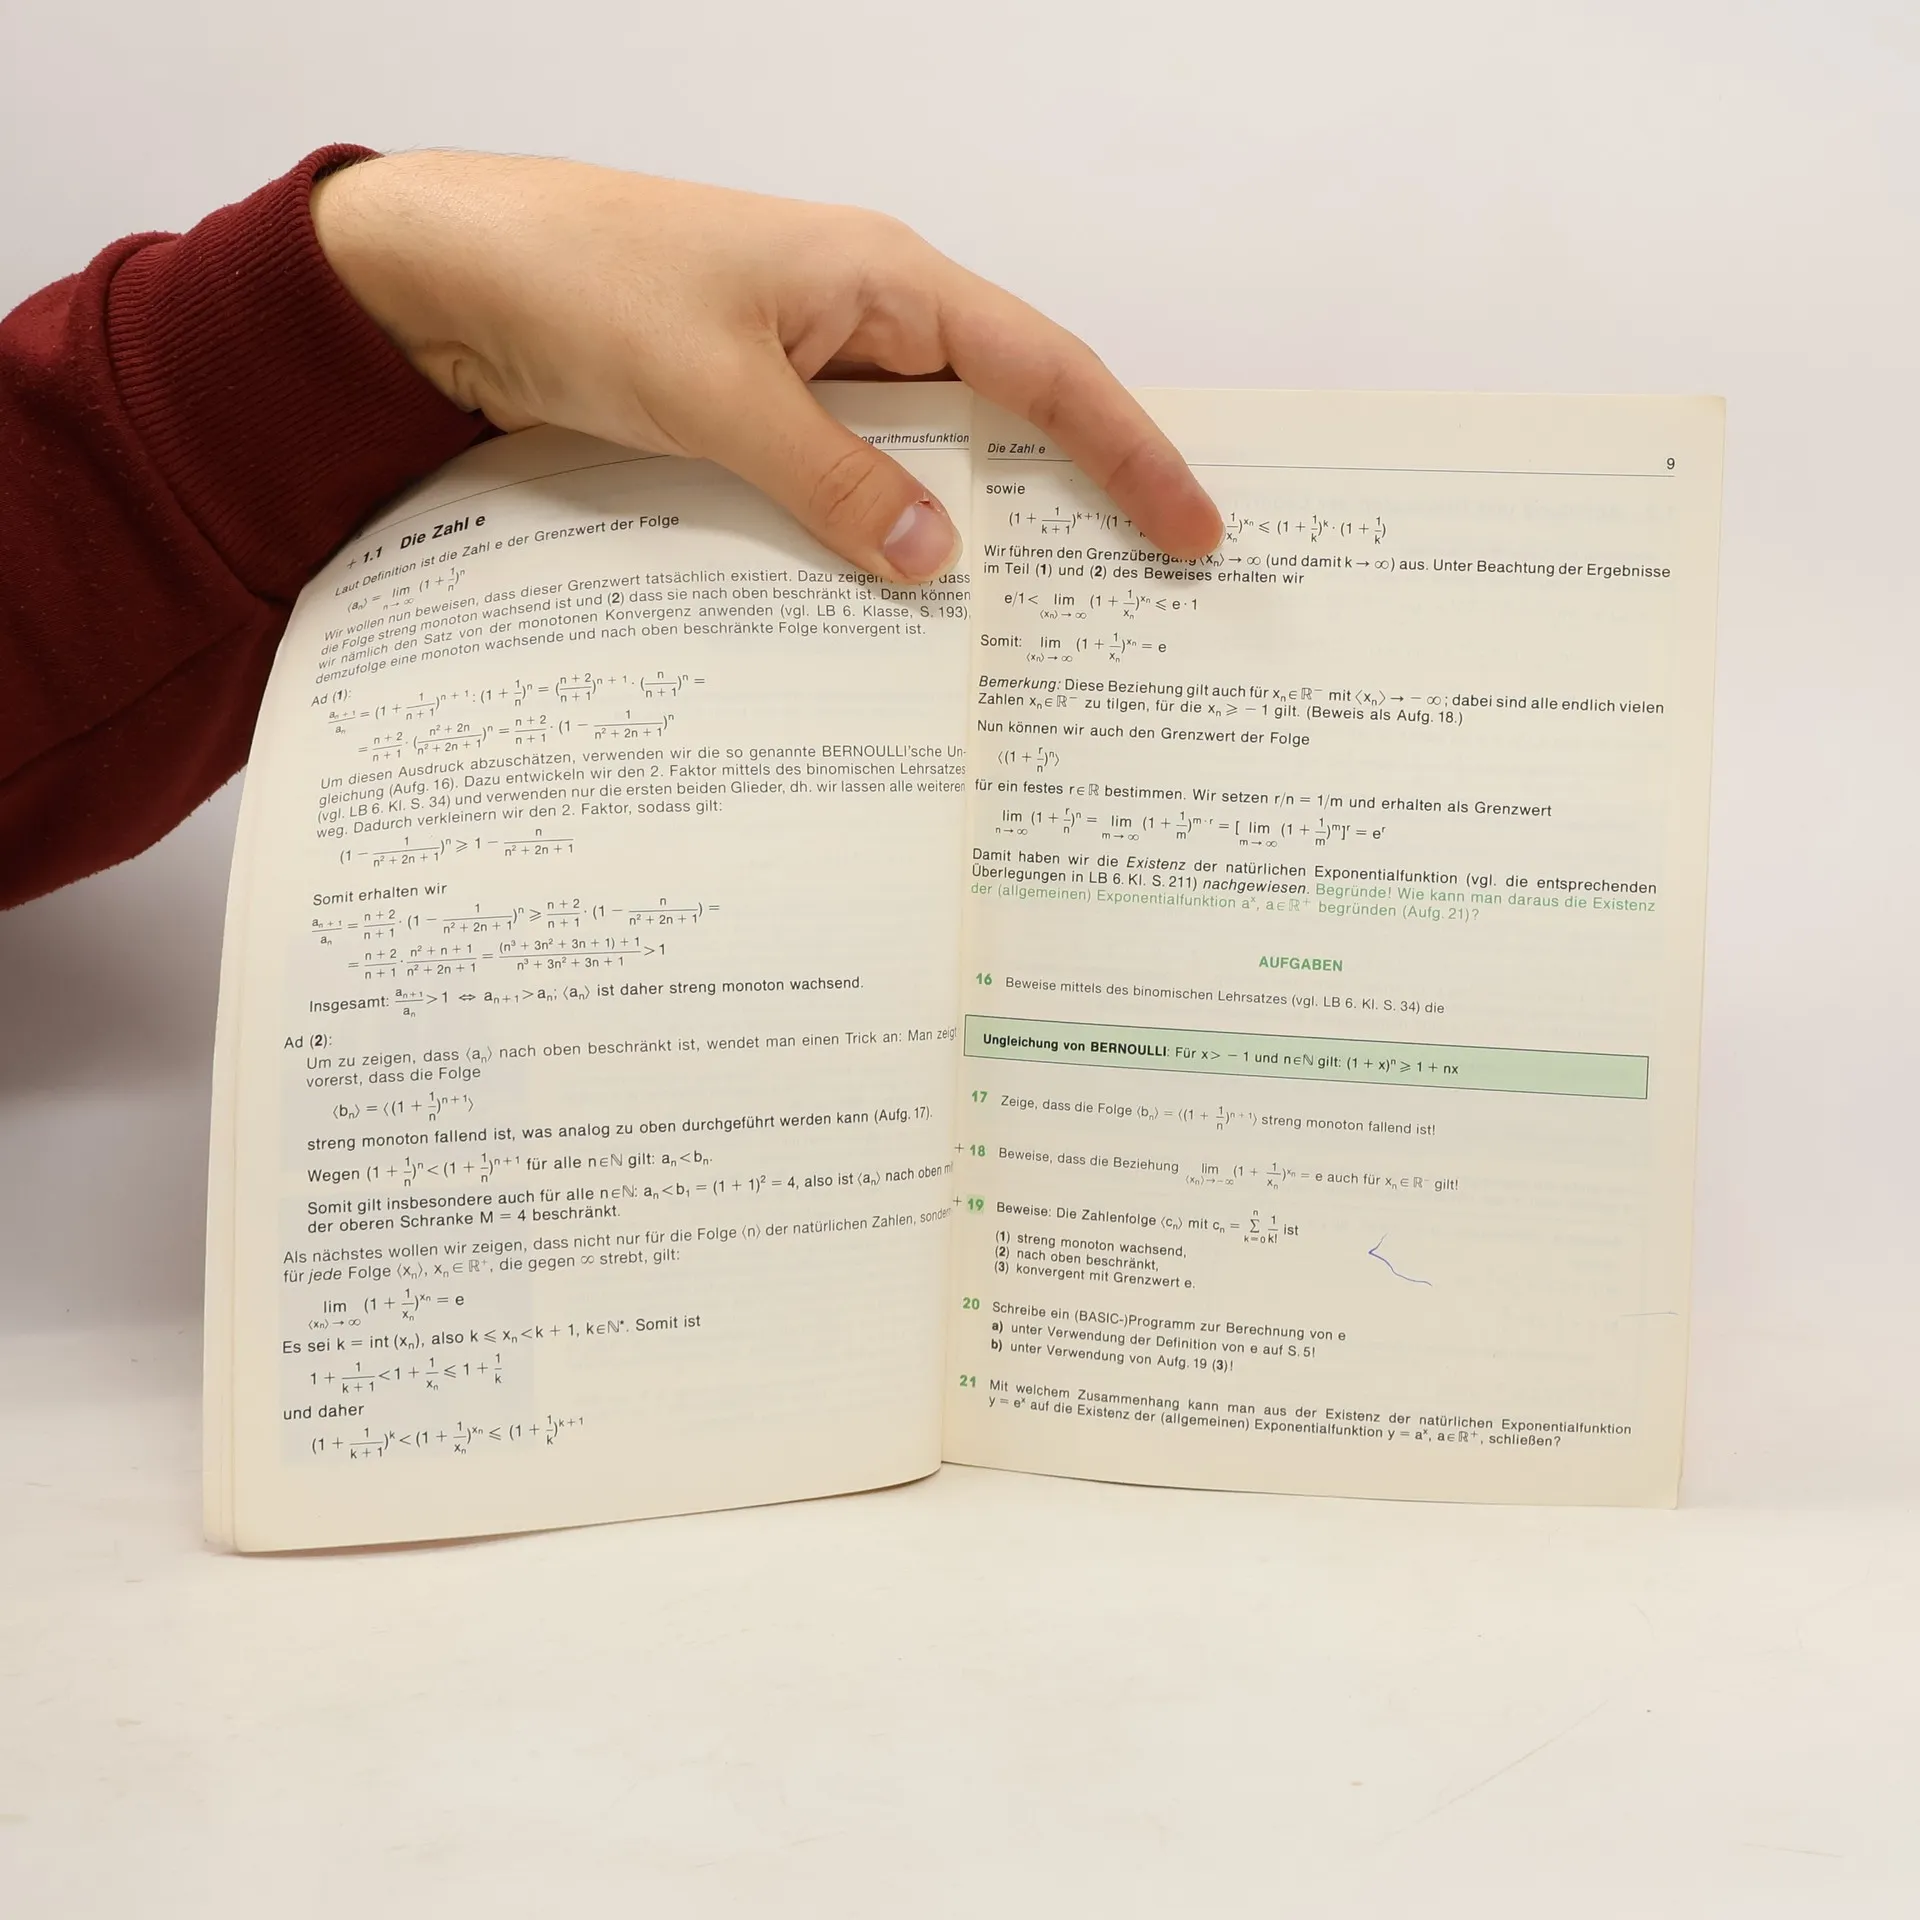 ogarithmusfunktion
+ 1.1 Die Zahl e
Laut Definition ist die Zahl e der Grenzwert der Folge
⟨aₙ⟩ = lim n→∞ (1 + 1/n)ⁿ
Wir wollen nun beweisen, dass dieser Grenzwert tatsächlich existiert. Dazu zeigen dass
die Folge streng monoton wachsend ist und (2) dass sie nach oben beschränkt ist. Dann können
wir nämlich den Satz von der monotonen Konvergenz anwenden (vgl. LB 6. Klasse, S. 193),
demzufolge eine monoton wachsende und nach oben beschränkte Folge konvergent ist.
Ad (1):
aₙ₊₁/aₙ = (1 + 1/(n + 1))ⁿ⁺¹ : (1 + 1/n)ⁿ = ((n + 2)/(n + 1))ⁿ⁺¹ · (n/(n + 1))ⁿ =
= (n + 2)/(n + 1) · ((n² + 2n)/(n² + 2n + 1))ⁿ = (n + 2)/(n + 1) · (1 − 1/(n² + 2n + 1))ⁿ
Um diesen Ausdruck abzuschätzen, verwenden wir die so genannte BERNOULLI'sche Un-
gleichung (Aufg. 16). Dazu entwickeln wir den 2. Faktor mittels des binomischen Lehrsatzes
(vgl. LB 6. Kl. S. 34) und verwenden nur die ersten beiden Glieder, dh. wir lassen alle weiteren
weg. Dadurch verkleinern wir den 2. Faktor, sodass gilt:
(1 − 1/(n² + 2n + 1))ⁿ ⩾ 1 − n/(n² + 2n + 1)
Somit erhalten wir
aₙ₊₁/aₙ = (n + 2)/(n + 1) · (1 − 1/(n² + 2n + 1))ⁿ ⩾ (n + 2)/(n + 1) · (1 − n/(n² + 2n + 1)) =
= (n + 2)/(n + 1) · (n² + n + 1)/(n² + 2n + 1) = ((n³ + 3n² + 3n + 1) + 1)/(n³ + 3n² + 3n + 1) > 1
Insgesamt: aₙ₊₁/aₙ > 1 ⇔ aₙ₊₁ > aₙ; ⟨aₙ⟩ ist daher streng monoton wachsend.
Ad (2):
Um zu zeigen, dass ⟨aₙ⟩ nach oben beschränkt ist, wendet man einen Trick an: Man zeigt
vorerst, dass die Folge
⟨bₙ⟩ = ⟨(1 + 1/n)ⁿ⁺¹⟩
streng monoton fallend ist, was analog zu oben durchgeführt werden kann (Aufg. 17).
Wegen (1 + 1/n)ⁿ < (1 + 1/n)ⁿ⁺¹ für alle n∈ℕ gilt: aₙ < bₙ.
Somit gilt insbesondere auch für alle n∈ℕ: aₙ < b₁ = (1 + 1)² = 4, also ist ⟨aₙ⟩ nach oben mi
der oberen Schranke M = 4 beschränkt.
Als nächstes wollen wir zeigen, dass nicht nur für die Folge ⟨n⟩ der natürlichen Zahlen, sonder
für jede Folge ⟨xₙ⟩, xₙ∈ℝ⁺, die gegen ∞ strebt, gilt:
lim ⟨xₙ⟩→∞ (1 + 1/xₙ)^xₙ = e
Es sei k = int (xₙ), also k ⩽ xₙ < k + 1, k∈ℕ*. Somit ist
1 + 1/(k + 1) < 1 + 1/xₙ ⩽ 1 + 1/k
und daher
(1 + 1/(k + 1))ᵏ < (1 + 1/xₙ)^xₙ ⩽ (1 + 1/k)ᵏ⁺¹
Die Zahl e 9
sowie
(1 + 1/(k + 1))ᵏ⁺¹/(1 + 1/xₙ)^xₙ ⩽ (1 + 1/k)ᵏ · (1 + 1/k)
Wir führen den Grenzübergang ⟨xₙ⟩ → ∞ (und damit k → ∞) aus. Unter Beachtung der Ergebnisse
im Teil (1) und (2) des Beweises erhalten wir
e/1 < lim ⟨xₙ⟩→∞ (1 + 1/xₙ)^xₙ ⩽ e · 1
Somit: lim ⟨xₙ⟩→∞ (1 + 1/xₙ)^xₙ = e
Bemerkung: Diese Beziehung gilt auch für xₙ∈ℝ⁻ mit ⟨xₙ⟩ → − ∞; dabei sind alle endlich vielen
Zahlen xₙ∈ℝ⁻ zu tilgen, für die xₙ ⩾ − 1 gilt. (Beweis als Aufg. 18.)
Nun können wir auch den Grenzwert der Folge
⟨(1 + r/n)ⁿ⟩
für ein festes r∈ℝ bestimmen. Wir setzen r/n = 1/m und erhalten als Grenzwert
lim n→∞ (1 + r/n)ⁿ = lim m→∞ (1 + 1/m)^(m·r) = [ lim m→∞ (1 + 1/m)ᵐ]ʳ = eʳ
Damit haben wir die Existenz der natürlichen Exponentialfunktion (vgl. die entsprechenden
Überlegungen in LB 6. Kl. S. 211) nachgewiesen. Begründe! Wie kann man daraus die Existenz
der (allgemeinen) Exponentialfunktion aˣ, a∈ℝ⁺ begründen (Aufg. 21)?
AUFGABEN
16 Beweise mittels des binomischen Lehrsatzes (vgl. LB 6. Kl. S. 34) die
Ungleichung von BERNOULLI: Für x > − 1 und n∈ℕ gilt: (1 + x)ⁿ ⩾ 1 + nx
17 Zeige, dass die Folge ⟨bₙ⟩ = ⟨(1 + 1/n)ⁿ⁺¹⟩ streng monoton fallend ist!
+ 18 Beweise, dass die Beziehung lim ⟨xₙ⟩→−∞ (1 + 1/xₙ)^xₙ = e auch für xₙ∈ℝ⁻ gilt!
+ 19 Beweise: Die Zahlenfolge ⟨cₙ⟩ mit cₙ = Σ k=0 n 1/k! ist
(1) streng monoton wachsend,
(2) nach oben beschränkt,
(3) konvergent mit Grenzwert e.
20 Schreibe ein (BASIC-)Programm zur Berechnung von e
a) unter Verwendung der Definition von e auf S. 5!
b) unter Verwendung von Aufg. 19 (3)!
21 Mit welchem Zusammenhang kann man aus der Existenz der natürlichen Exponentialfunktion
y = eˣ auf die Existenz der (allgemeinen) Exponentialfunktion y = aˣ, a∈ℝ⁺, schließen?